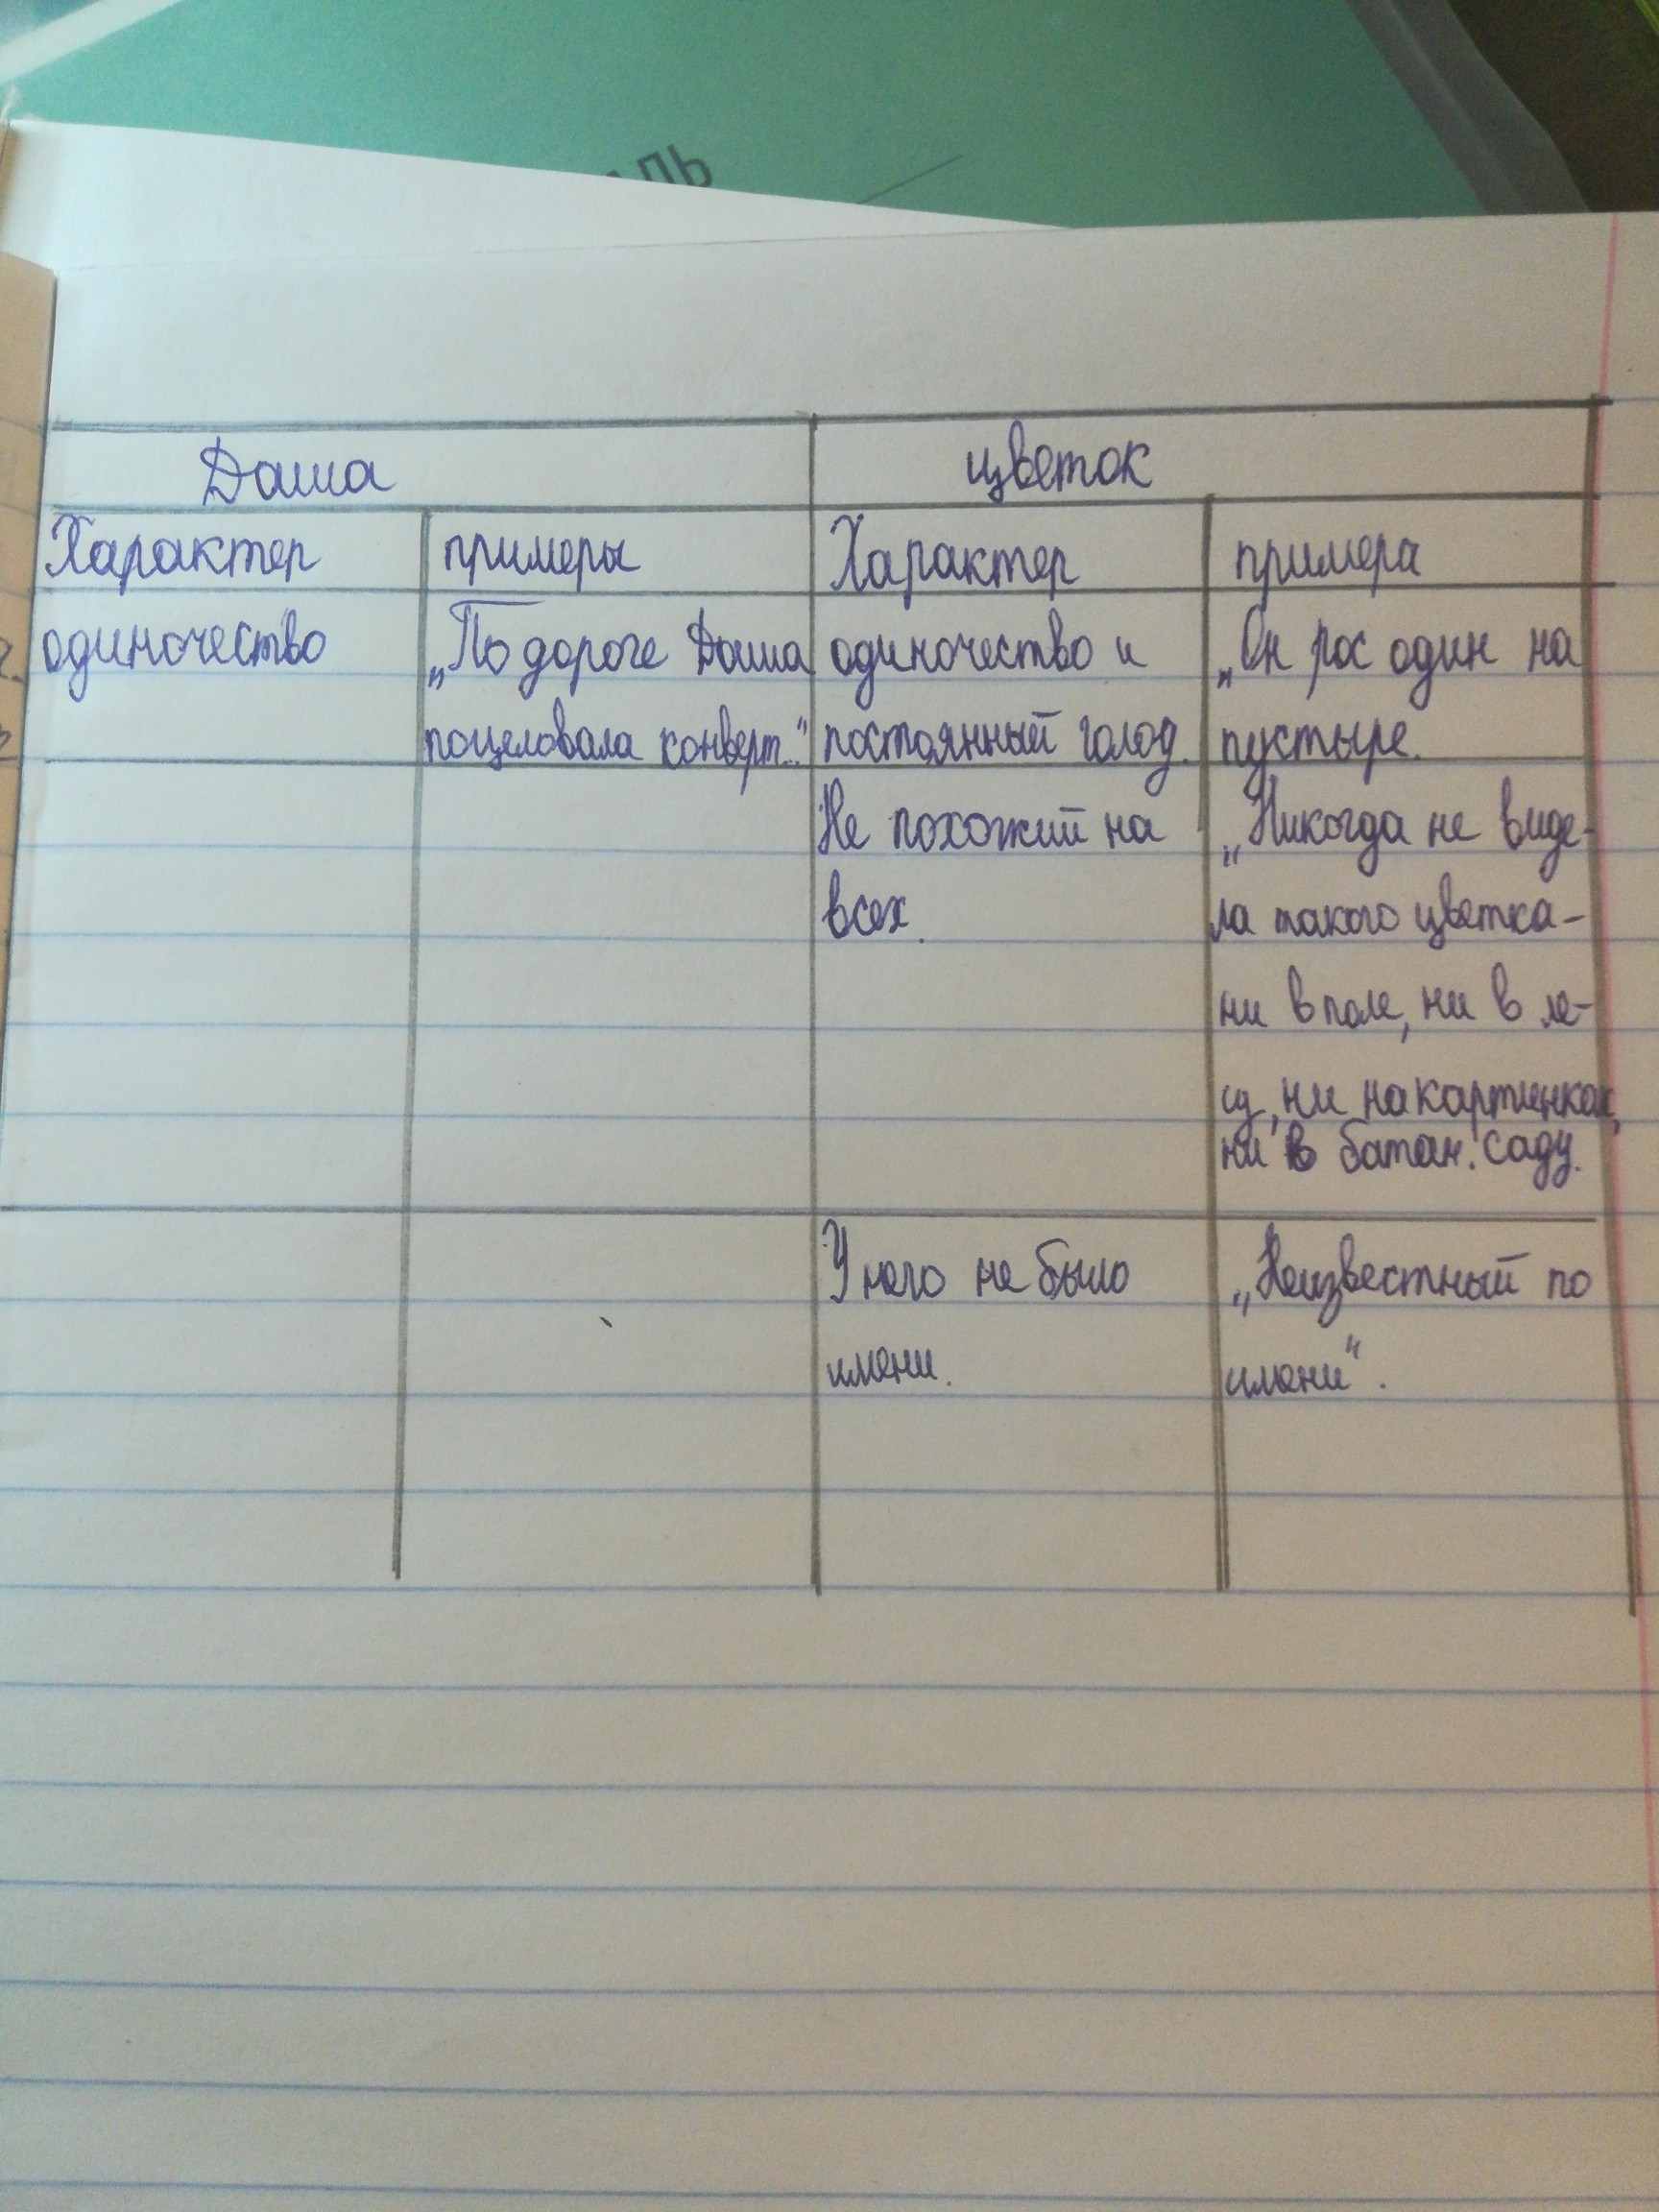 Даша
цветок
Характер
примеры
Характер
примера
одиночество
„По дороге Даша
поцеловала конверт..."
одиночество и
постоянный голод.
„Он рос один на
пустыре.
Не похожий на
всех.
„Никогда не виде-
ла такого цветка-
ни в поле, ни в ле-
су, ни на картинках,
ни в батан. саду.
У него не было
имени.
„Неизвестный по
имени".